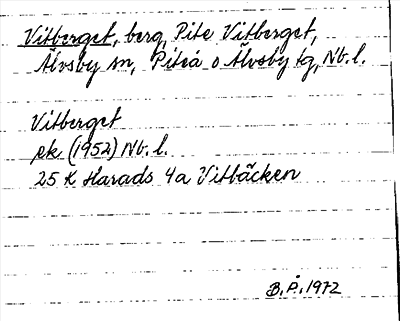 Vitberget, berg, Pite Vitberget,
Älvsby sn, Piteå o Älvsby tg, Nb. l.
Vitberget
ek (1952) Nb. l.
25 K Harads 4a Vitbäcken
B. P. 1972